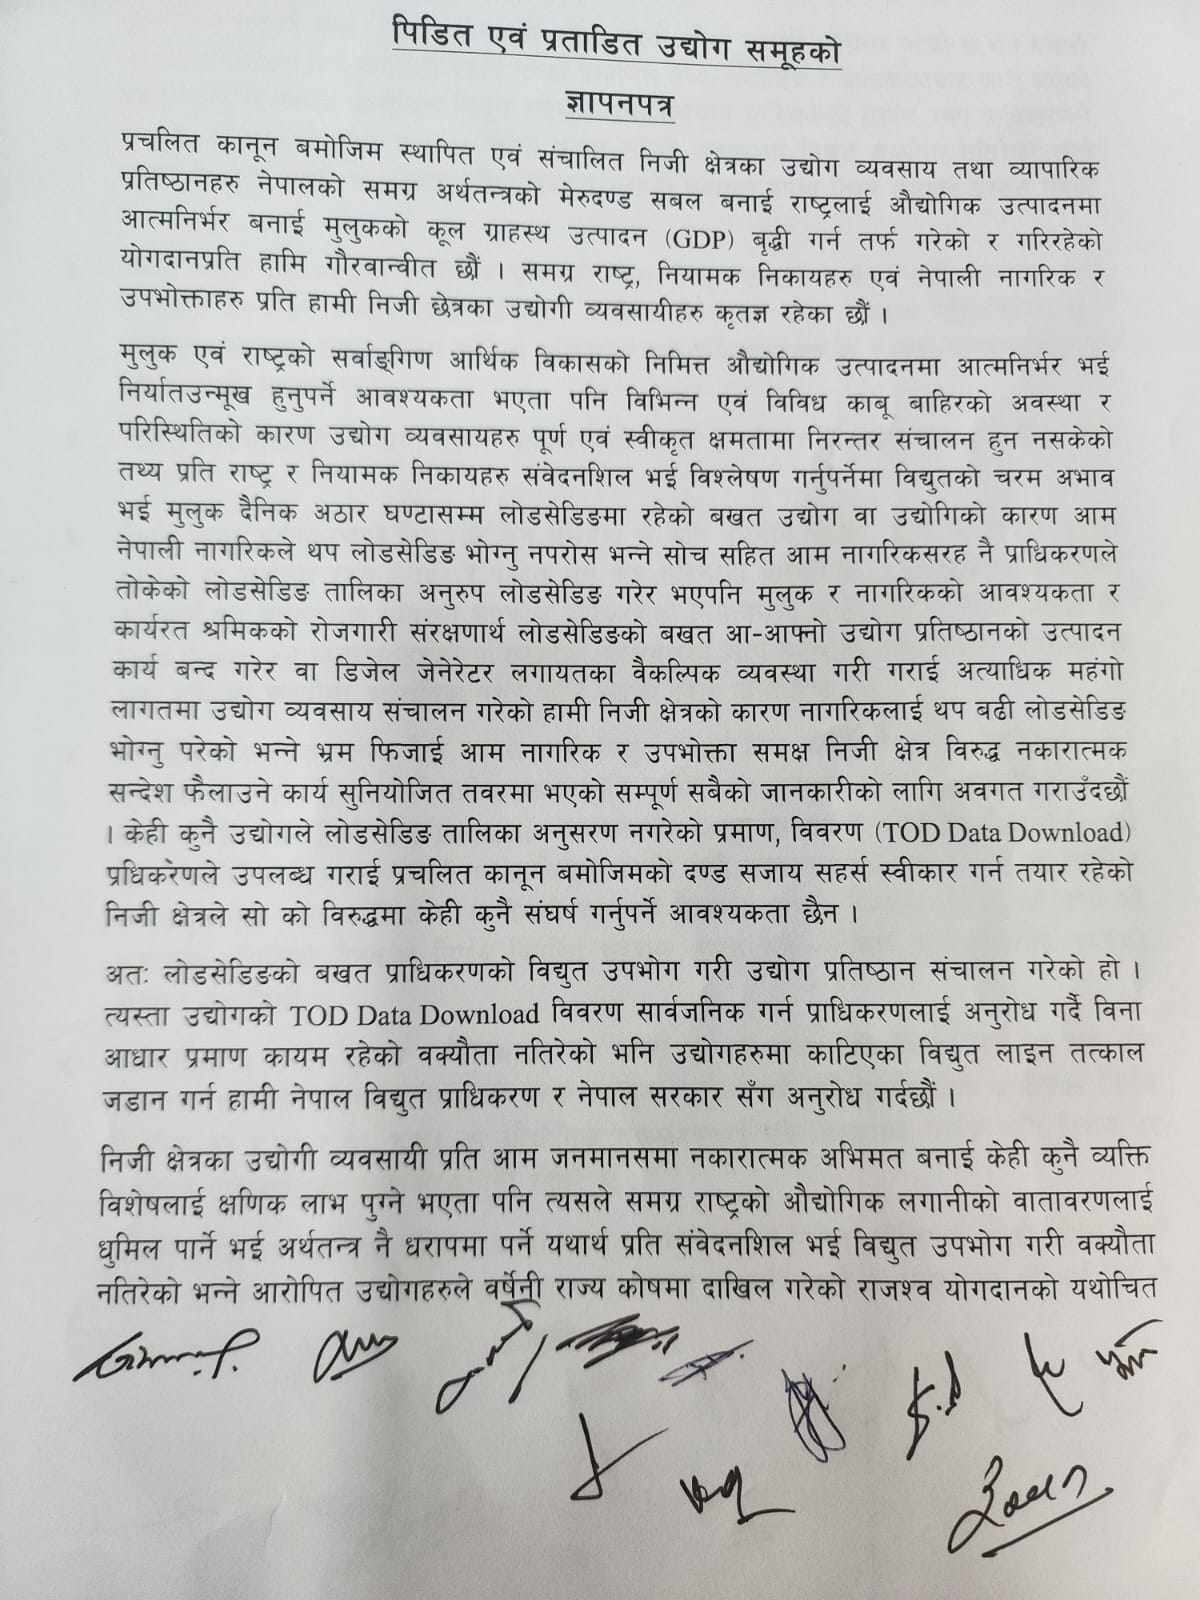 पिडित एवं प्रताडित उद्योग समूहको
ज्ञापनपत्र
प्रचलित कानून बमोजिम स्थापित एवं संचालित निजी क्षेत्रका उद्योग व्यवसाय तथा व्यापारिक
प्रतिष्ठानहरु नेपालको समग्र अर्थतन्त्रको मेरुदण्ड सबल बनाई राष्ट्रलाई औद्योगिक उत्पादनमा
आत्मनिर्भर बनाई मुलुकको कूल ग्राहस्थ उत्पादन (GDP) बृद्धी गर्न तर्फ गरेको र गरिरहेको
योगदानप्रति हामि गौरवान्वीत छौं । समग्र राष्ट्र, नियामक निकायहरु एवं नेपाली नागरिक र
उपभोक्ताहरु प्रति हामी निजी छेत्रका उद्योगी व्यवसायीहरु कृतज्ञ रहेका छौं ।
मुलुक एवं राष्ट्रको सर्वाङ्गिण आर्थिक विकासको निमित्त औद्योगिक उत्पादनमा आत्मनिर्भर भई
निर्यातउन्मूख हुनुपर्ने आवश्यकता भएता पनि विभिन्न एवं विविध काबू बाहिरको अवस्था र
परिस्थितिको कारण उद्योग व्यवसायहरु पूर्ण एवं स्वीकृत क्षमतामा निरन्तर संचालन हुन नसकेको
तथ्य प्रति राष्ट्र र नियामक निकायहरु संवेदनशिल भई विश्लेषण गर्नुपर्नेमा विद्युतको चरम अभाव
भई मुलुक दैनिक अठार घण्टासम्म लोडसेडिङमा रहेको बखत उद्योग वा उद्योगिको कारण आम
नेपाली नागरिकले थप लोडसेडिङ भोग्नु नपरोस भन्ने सोच सहित आम नागरिकसरह नै प्राधिकरणले
तोकेको लोडसेडिङ तालिका अनुरुप लोडसेडिङ गरेर भएपनि मुलुक र नागरिकको आवश्यकता र
कार्यरत श्रमिकको रोजगारी संरक्षणार्थ लोडसेडिङको बखत आ-आफ्नो उद्योग प्रतिष्ठानको उत्पादन
कार्य बन्द गरेर वा डिजेल जेनेरेटर लगायतका वैकल्पिक व्यवस्था गरी गराई अत्याधिक महंगो
लागतमा उद्योग व्यवसाय संचालन गरेको हामी निजी क्षेत्रको कारण नागरिकलाई थप बढी लोडसेडिङ
भोग्नु परेको भन्ने भ्रम फिजाई आम नागरिक र उपभोक्ता समक्ष निजी क्षेत्र विरुद्ध नकारात्मक
सन्देश फैलाउने कार्य सुनियोजित तवरमा भएको सम्पूर्ण सबैको जानकारीको लागि अवगत गराउँदछौं
। केही कुनै उद्योगले लोडसेडिङ तालिका अनुसरण नगरेको प्रमाण, विवरण (TOD Data Download)
प्रधिकरेणले उपलब्ध गराई प्रचलित कानून बमोजिमको दण्ड सजाय सहर्स स्वीकार गर्न तयार रहेको
निजी क्षेत्रले सो को विरुद्धमा केही कुनै संघर्ष गर्नुपर्ने आवश्यकता छैन ।
अतः लोडसेडिङको बखत प्राधिकरणको विद्युत उपभोग गरी उद्योग प्रतिष्ठान संचालन गरेको हो ।
त्यस्ता उद्योगको TOD Data Download विवरण सार्वजनिक गर्न प्राधिकरणलाई अनुरोध गर्दै विना
आधार प्रमाण कायम रहेको वक्यौता नतिरेको भनि उद्योगहरुमा काटिएका विद्युत लाइन तत्काल
जडान गर्न हामी नेपाल विद्युत प्राधिकरण र नेपाल सरकार सँग अनुरोध गर्दछौं ।
निजी क्षेत्रका उद्योगी व्यवसायी प्रति आम जनमानसमा नकारात्मक अभिमत बनाई केही कुनै व्यक्ति
विशेषलाई क्षणिक लाभ पुग्ने भएता पनि त्यसले समग्र राष्ट्रको औद्योगिक लगानीको वातावरणलाई
धुमिल पार्ने भई अर्थतन्त्र नै धरापमा पर्ने यथार्थ प्रति संवेदनशिल भई विद्युत उपभोग गरी वक्यौता
नतिरेको भन्ने आरोपित उद्योगहरुले वर्षेनी राज्य कोषमा दाखिल गरेको राजश्व योगदानको यथोचित